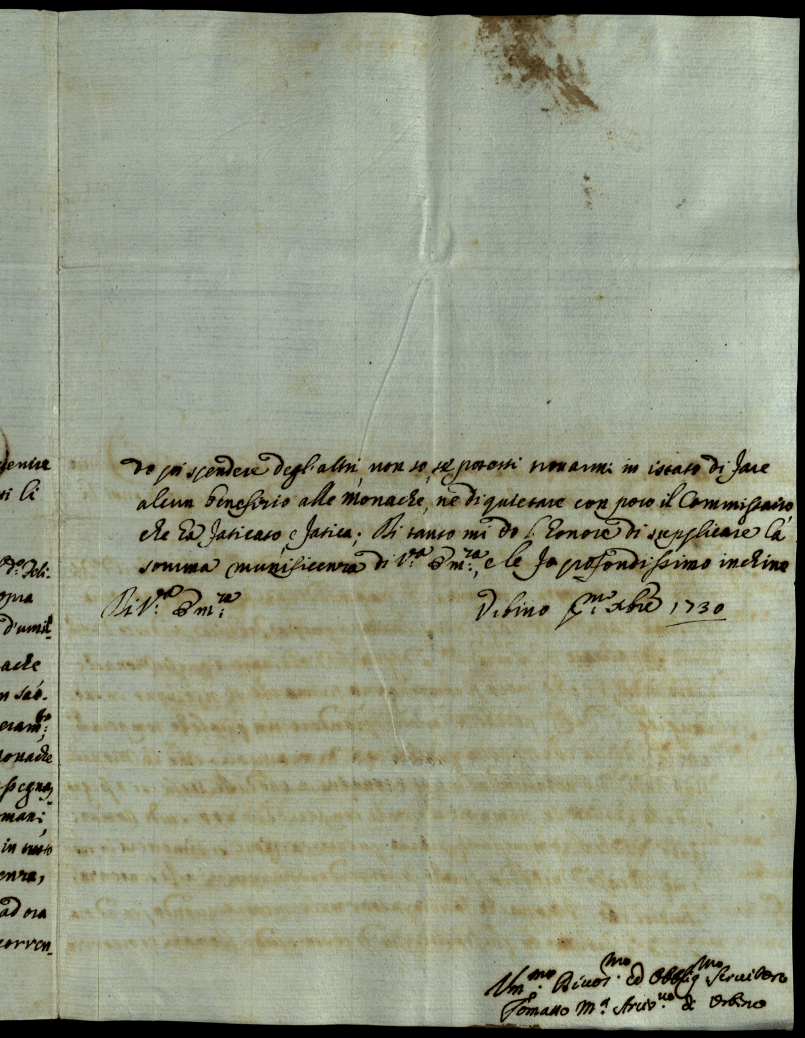 fenire
ti li
d.º Feli-
opra
d'umil-
ache
n sac-
eram.te
Monache
ssegna,
mani,
in tutto
enza,
ad ora
corren-
do poi spendere degl'altri, non so, se potrossi trovarmi in istato di fare
alcun benefizio alle Monache, nè di quietare con poco il Commissario,
che hà faticato e fatica; Di tanto mi do l'honore di supplicare la
somma munificenza di V.ra Em.za, e le fo profondissimo inchino
Di V.ra Em.za
Urbino p.mo Xbre 1730
Um.mo Divot.mo ed Obblig.mo Servitore
Tomaso M.a Arciv.vo di Urbino